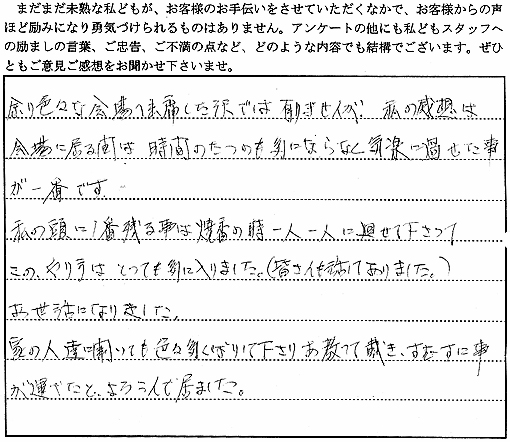 まだまだ未熟な私どもが、お客様のお手伝いをさせていただくなかで、お客様からの声
ほど励みになり勇気づけられるものはありません。アンケートの他にも私どもスタッフへ
の励ましの言葉、ご忠告、ご不満の点など、どのような内容でも結構でございます。ぜひ
ともご意見ご感想をお聞かせ下さいませ。
余り色々な会場へ出席した訳では有りませんが 私の感想は
会場に居る間は 時間のたつのも気にならなく気楽に過せた事
が一番です。
私の頭に1番残る事は焼香の時一人一人に 下さって
この、やり方は とっても気に入りました。(皆さんも でありました。)
お世話になりました。
家の人達に聞いても色々気くばりして下さりお教えて戴き、すむーずに事
が運べたと、よろこんで居ました。